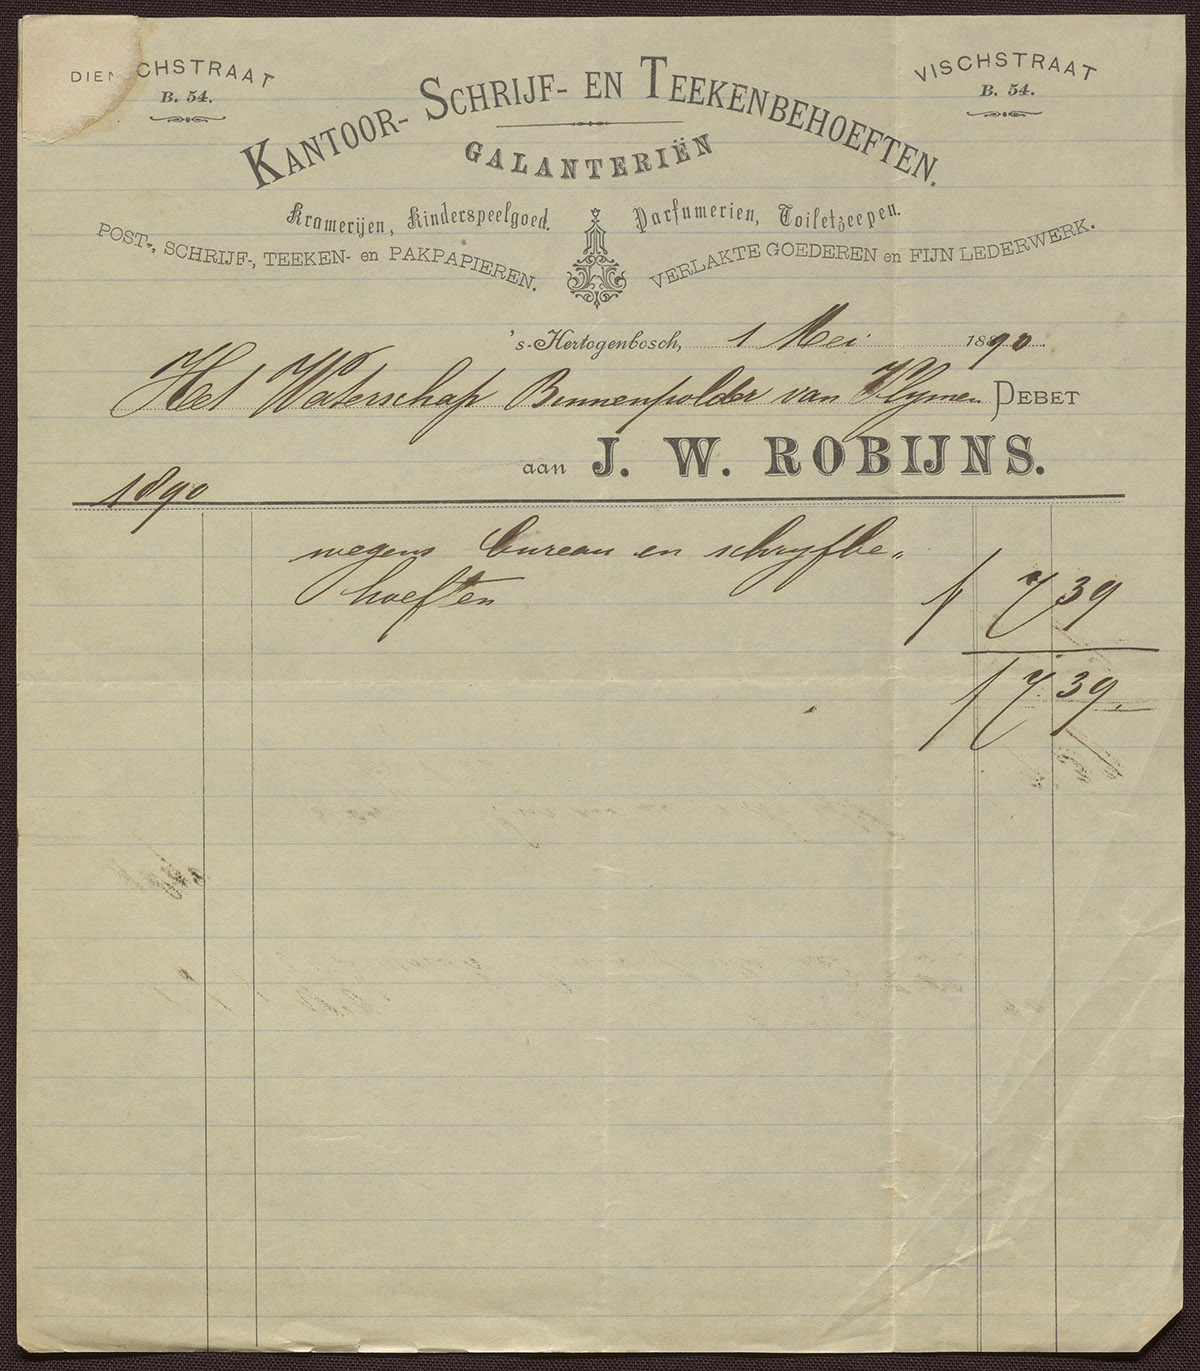 CHSTRAAT
B. 54.
VISCHSTRAAT
B. 54.
KANTOOR- SCHRIJF- EN TEEKENBEHOEFTEN.
GALANTERIËN
Kramerijen, Kinderspeelgoed.
Parfumerien, Toiletzeepen.
POST-, SCHRIJF-, TEEKEN- en PAKPAPIEREN.
VERLAKTE GOEDEREN en FIJN LEDERWERK.
's-Hertogenbosch, 1 Mei 1890
Het Waterschap Binnenpolder van Vlymen DEBET
aan J. W. ROBIJNS.
1890
wegens bureau en schryfbe„
hoeften f 7 39
f 7.39.